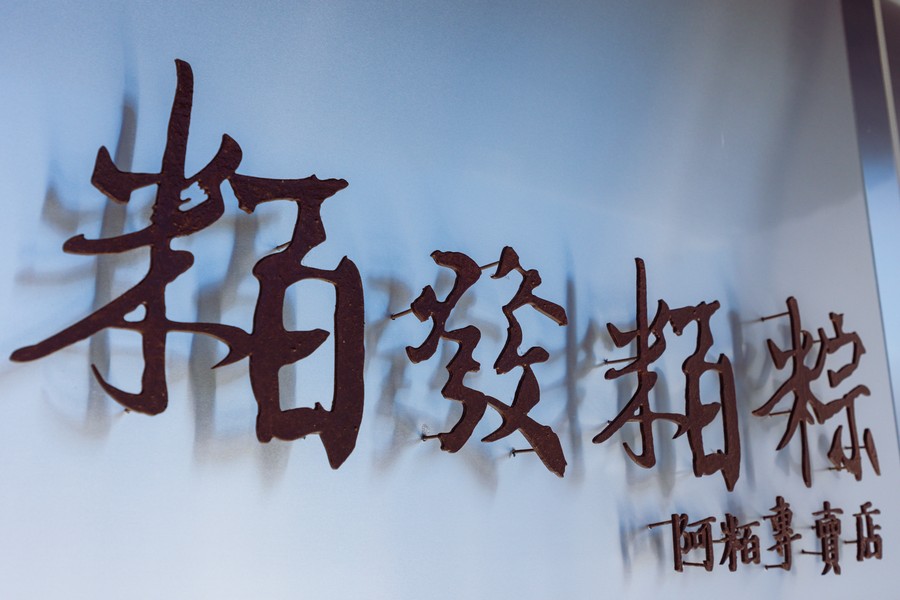 粨發粨粽
阿粨專賣店